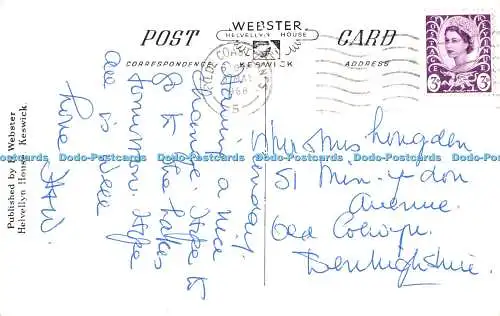 WEBSTER
HELVELLYN HOUSE
POST CARD
CORRESPONDENCE KESWICK ADDRESS
1968
3D 3D
Having a nice
change. Hope to
go to the Lakes
tomorrow. Hope
all is well
Love
Published by B. Webster
Helvellyn House Keswick
Longden
51 Min-y-don
Avenue.
Old Colwyn.
Denbighshire.
Dodo-Postcards Dodo-Postcards Dodo-Postcards Dodo-Postcards Dodo-Postcards Dodo-Postcards